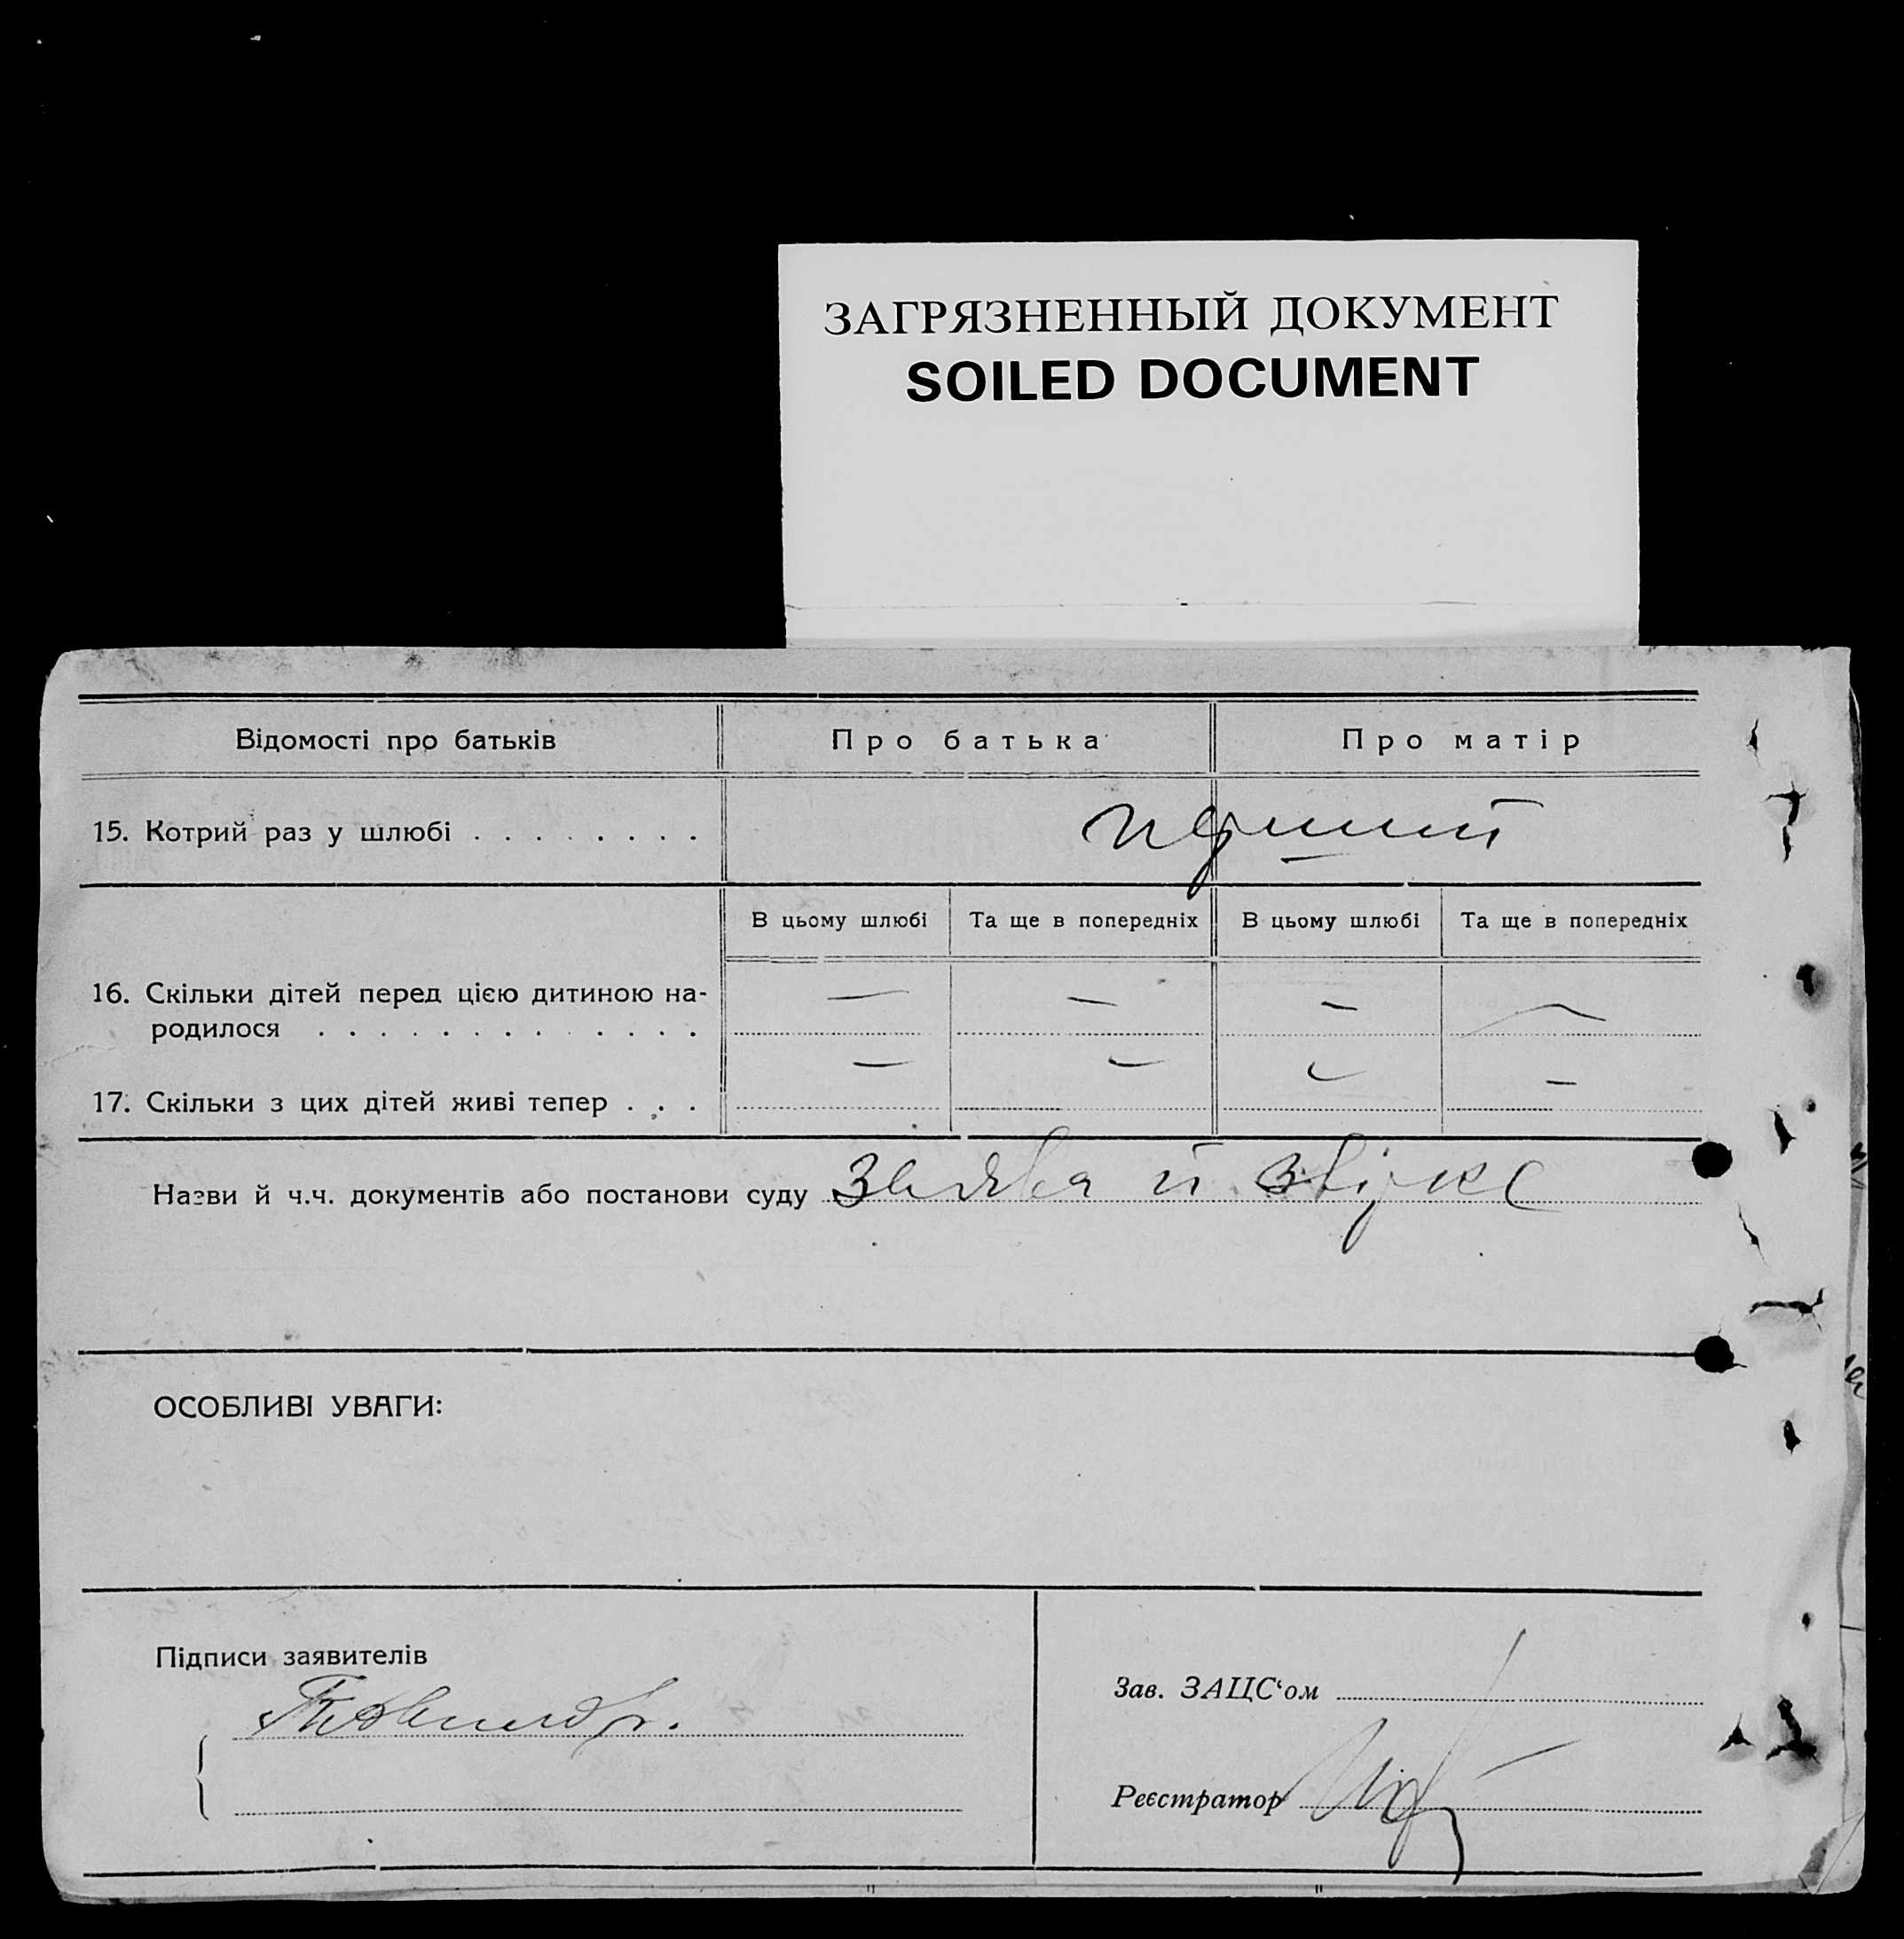 ЗАГРЯЗНЕННЫЙ ДОКУМЕНТ
SOILED DOCUMENT
Відомості про батьків
Про батька
Про матір
15. Котрий раз у шлюбі . . . . . . . .
перший
В цьому шлюбі
Та ще в попередніх
В цьому шлюбі
Та ще в попередніх
16. Скільки дітей перед цією дитиною на-
родилося . . . . . . . . . . . . .
— — — —
17. Скільки з цих дітей живі тепер . . .
— — — —
Назви й ч.ч. документів або постанови суду заява й
ОСОБЛИВІ УВАГИ:
Підписи заявителів
Зав. ЗАЦС‘ом
Реєстратор